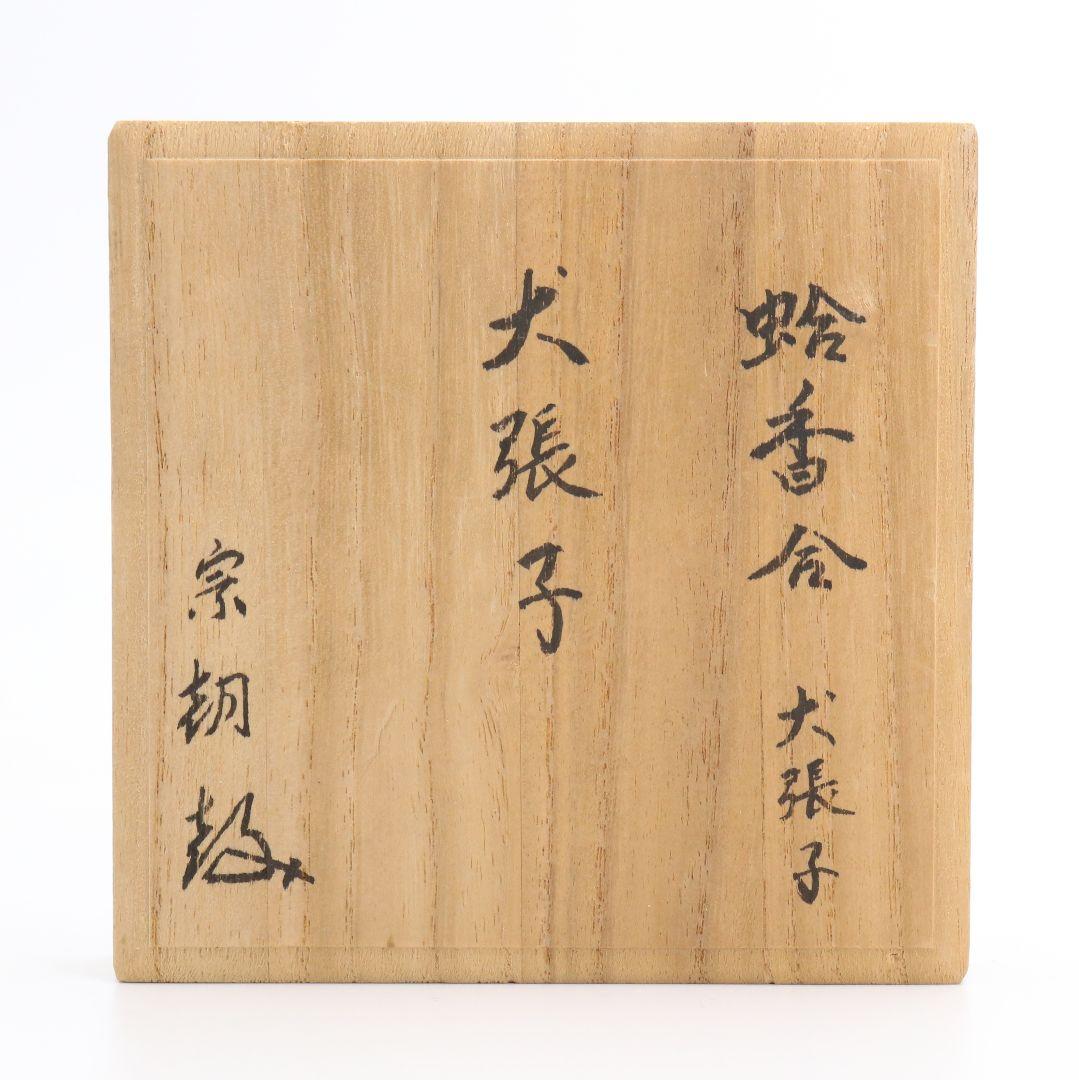 蛤香合 犬張子
犬張子
宗朝